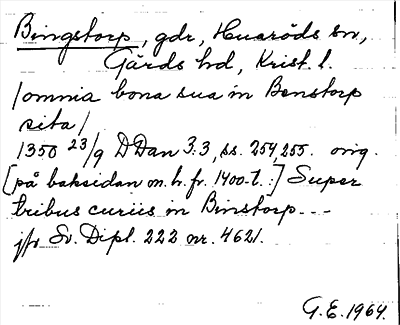 Bingstorp, gdr, Huaröds sn,
Gärds hd, Krist. l.
/omnia bona sua in Benstorp
sita/
1350 23/9 DDan 3:3, ss. 254, 255. orig.
[på baksidan m. h. fr. 1400-t.:] Super
tribus curiis in Binstorp---
jfr Sv. Dipl. 222 nr. 4621.
G.E. 1964.